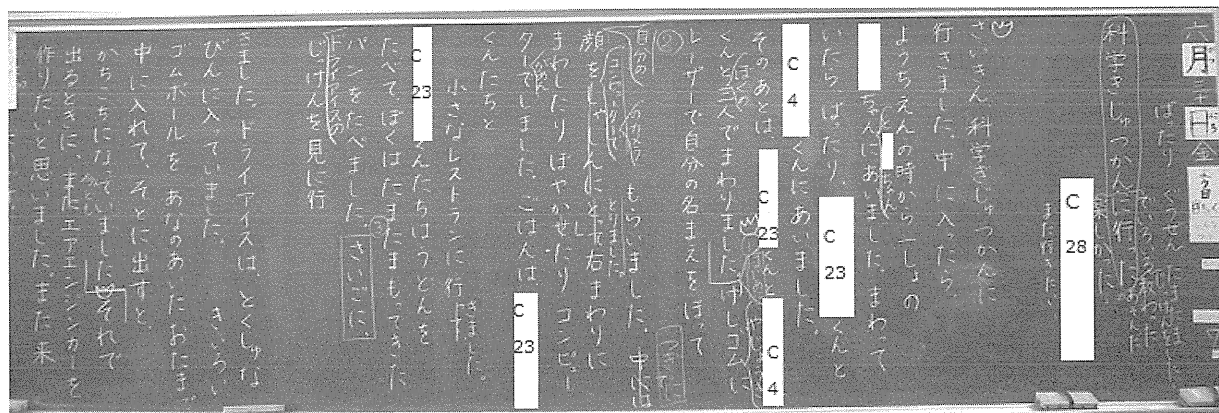 六月三十日金
ばったり ぐうせん
科学ぎじゅつかんに行
楽しかった
また行きたい
C 28
さいきん科学ぎじゅつかんに
行きました。中に入ったら
ようちえんの時から一しょの
ちゃんにあいました。まわって
いたらばったり、 C 23 くんと
C 4 くんにあいました。
そのあとは C 23 くんと C 4
くんとぼくの三人でまわりました。けしゴムに
レーザーで自分の名まえをほって
もらいました。中には
② つぎに
自分の
コンピューターのカメラ
とりました。
顔をしゃしんにとって右まわりに
まわしたりぼやかせたりコンピュー
ターでしました。ごはんは C 23
くんたちと
小さなレストランに行きました。
C 23 くんたちはうどんを
たべてぼくはたまたまもってきた
パンをたべました。③ さいごに、
ドライアイスの
じっけんを見に行
きました。ドライアイスは、とくしゅな
びんに入っていました。きいろい
ゴムボールをあなのあいたおたまで
中に入れて、そとに出すと、
かちこちになっていました。それで
出るときに、またエアエンジンカーを
作りたいと思いました。また来